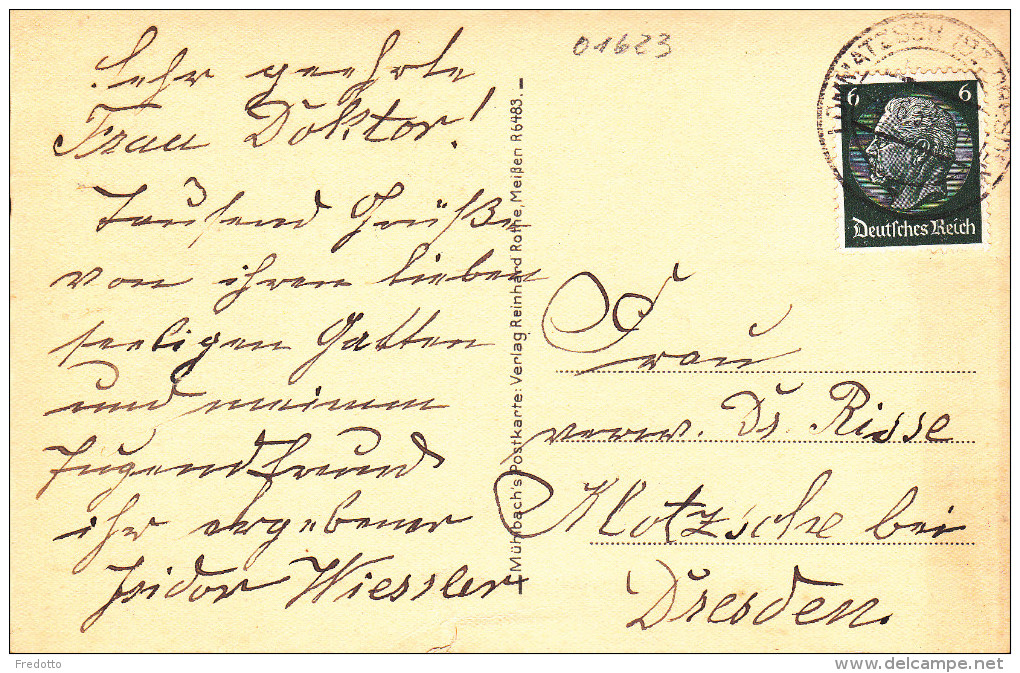 01623
Sehr geehrte
Frau Doktor!
Tausend Grüße
von ihren lieben
seeligen Gatten
und meinem
Jugendfreund
ihr ergebener
Isidor Wiessler
Mühlbach's Postkarte: Verlag Reinhard Rothe, Meißen R6483.
LOMMATZSCH
6 6
Deutsches Reich
Frau
verw. Dr. Risse
Klotzsche bei
Dresden.
Fredotto
delcampe.net